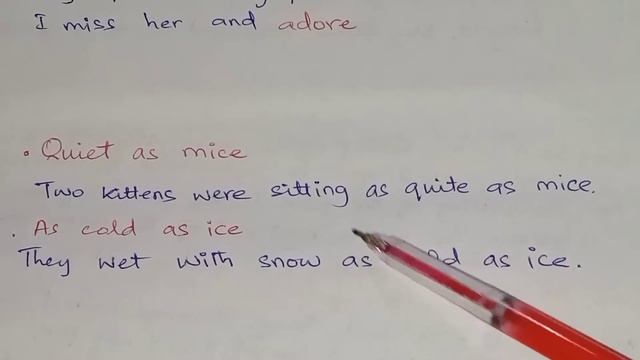 I miss her and adore
• Quiet as mice
Two kittens were sitting as quite as mice.
. As cold as ice
They wet with snow as as ice.